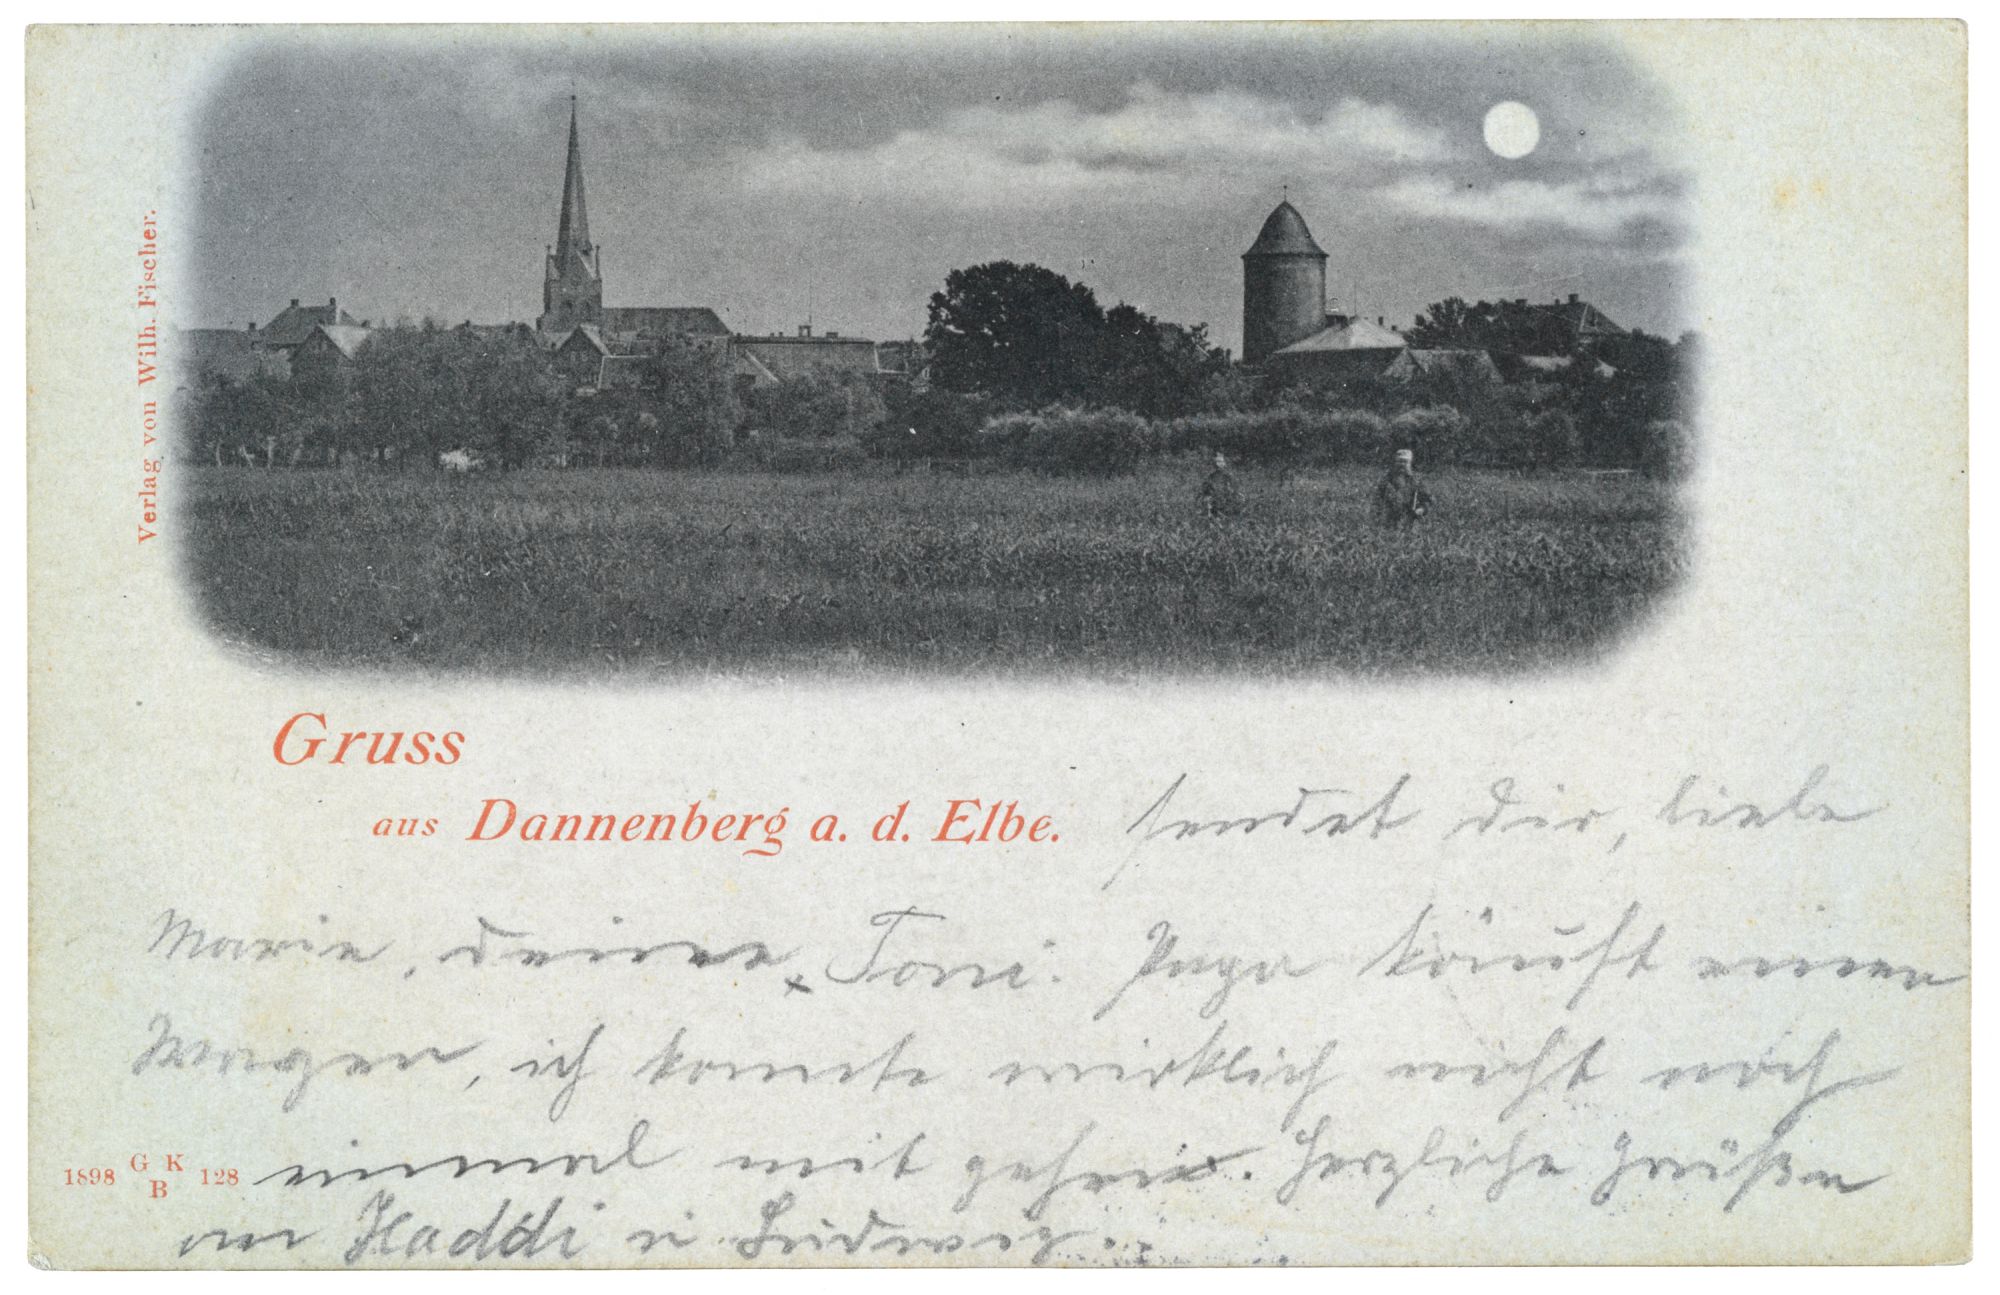 Verlag von Wilh. Fischer.
Gruss
aus Dannenberg a. d. Elbe. sendet dir, liebe
Marie, deine Toni. Papa käuft einen
Wagen, ich konnte wirklich nicht noch
1898 G K B 128 einmal mit gehen. Herzliche Grüße
an Haddi u Ludwig.